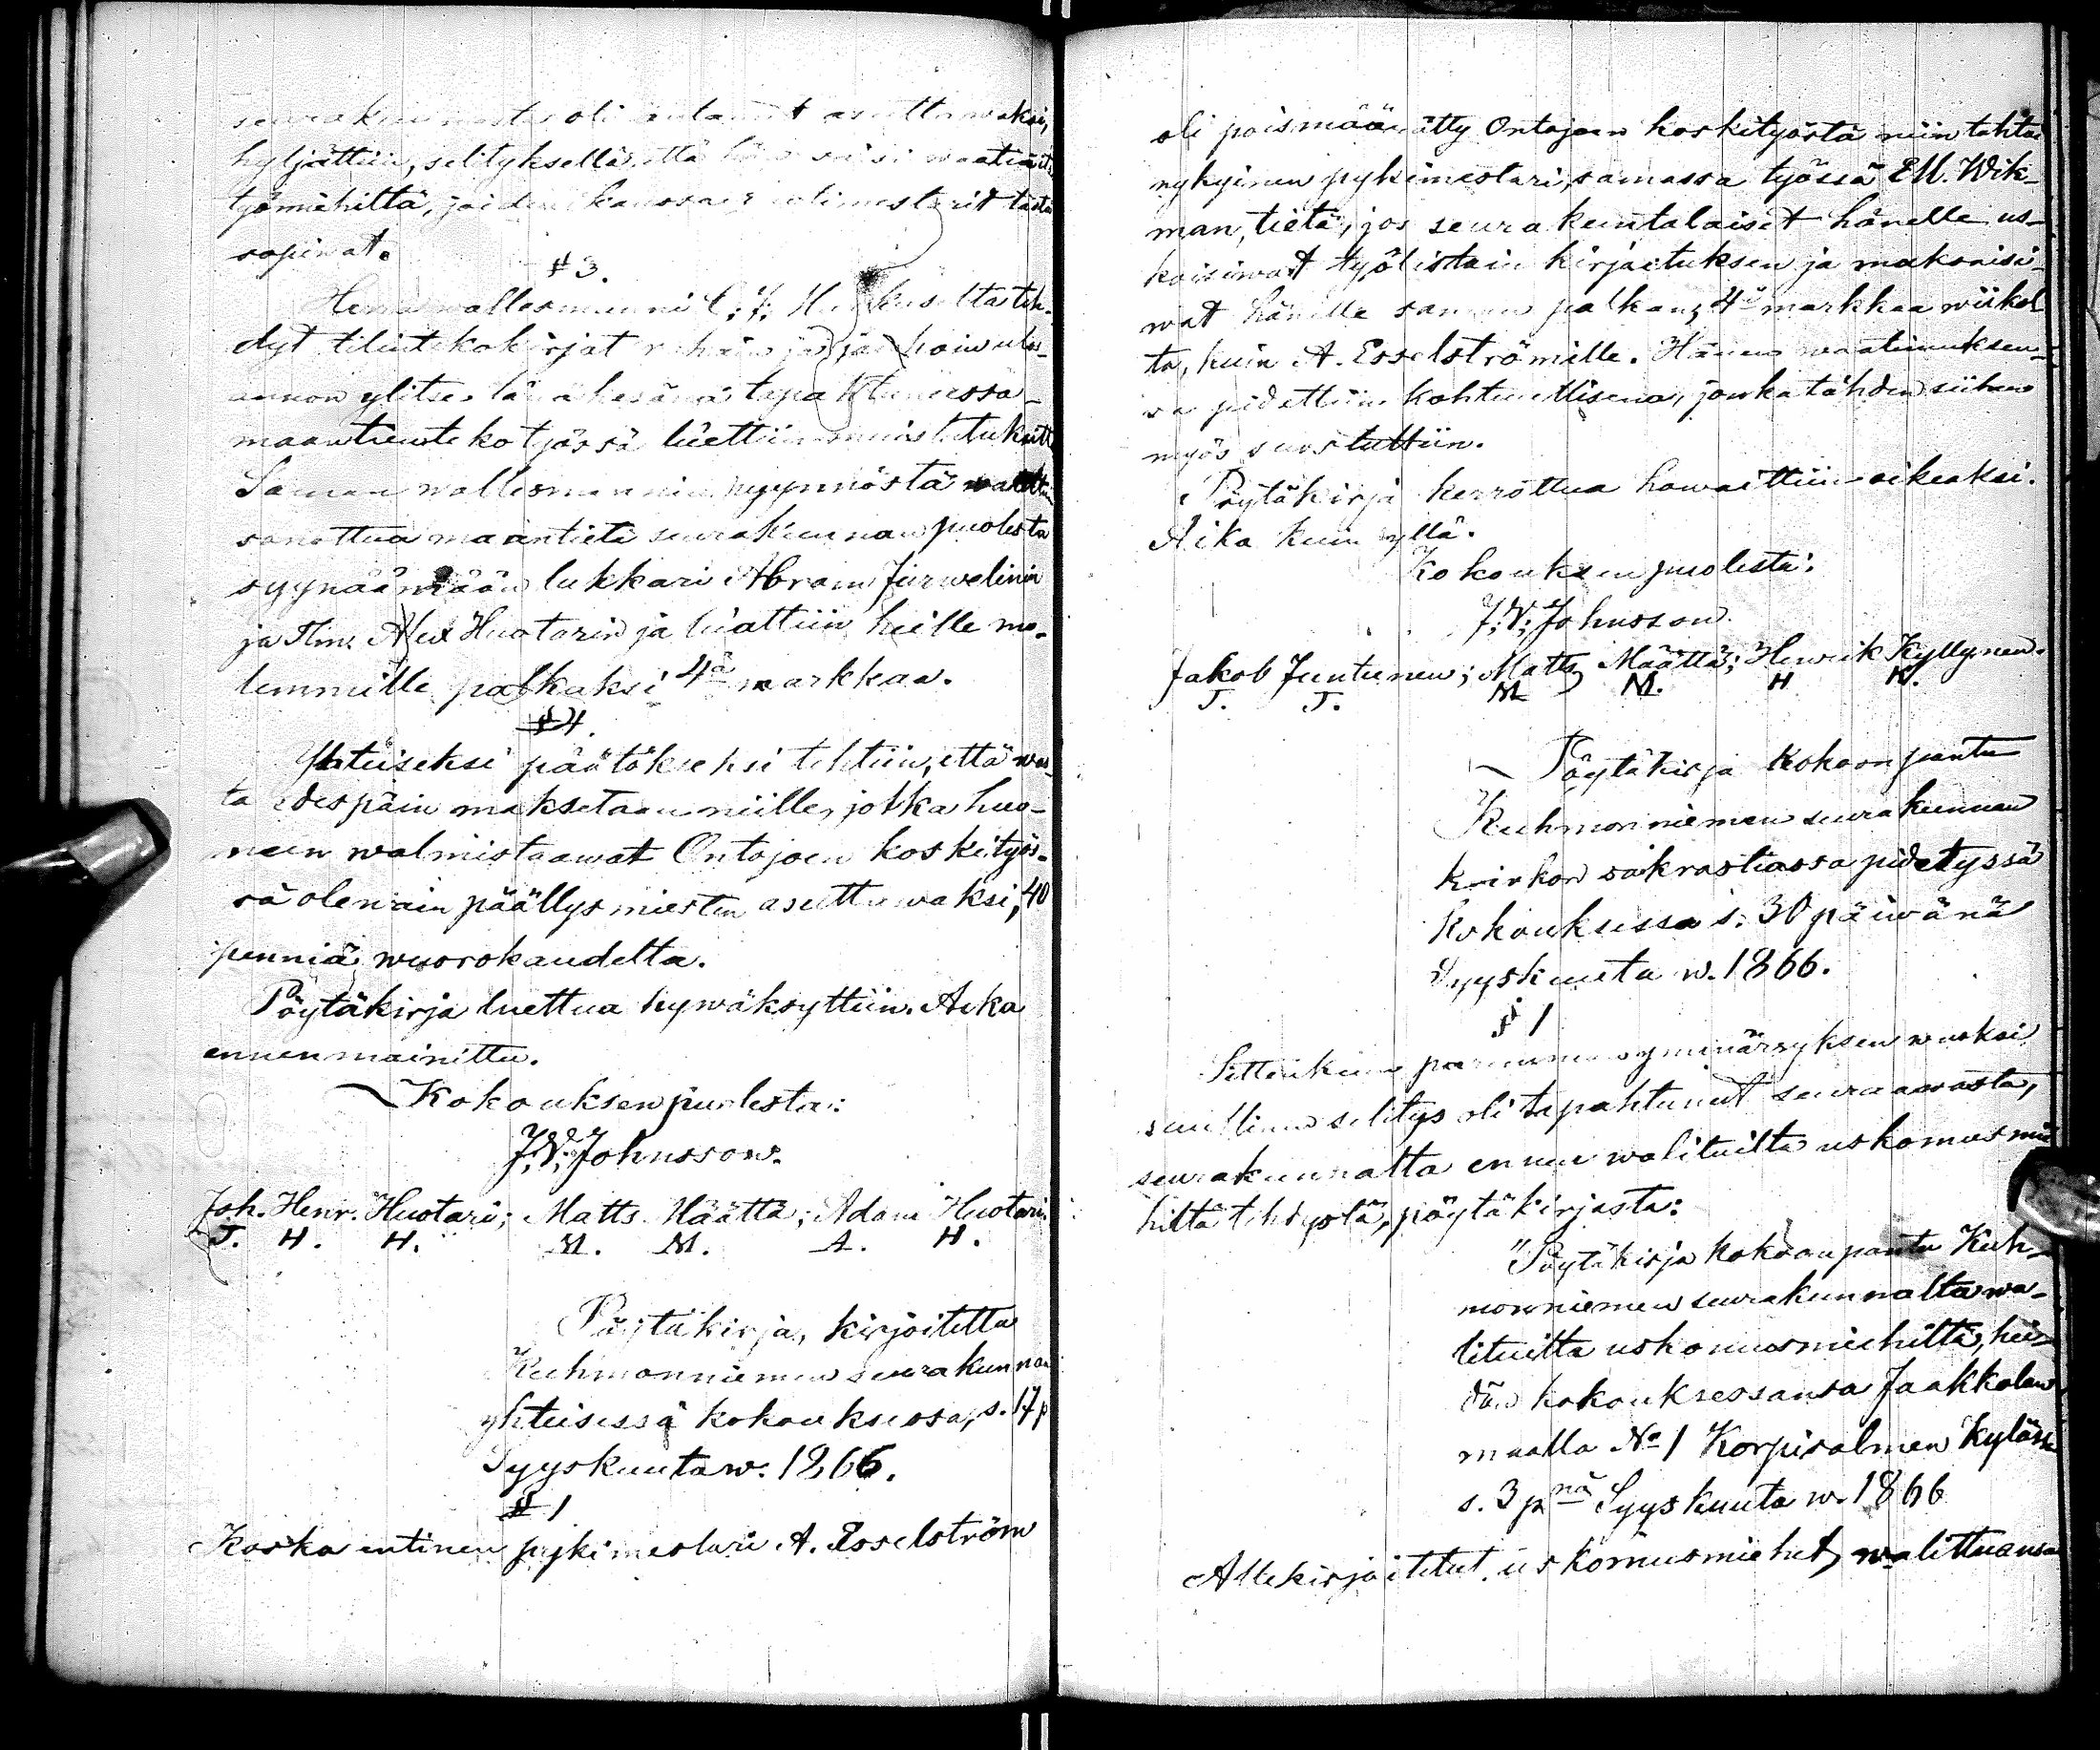 seurakun nosta oli antanut asettuwaksi,
hyljättiin, selityksellä että hän saisi waatia
työmiehiltä, joiden kanssa tästä
sopiwat.
§ 3.
Herra wallesmanni C. F.
dyt tilintekokirjat rahain ja
annon ylitse tänä kesänä tapahtuneessa
maantienteko työssä luettiin
Saman wallesmannin pyynnöstä
sanottua maantietä seurakunnan puolesta
syynäämään lukkari Abram Järwelinin
ja Tln. Alex Huotarin ja luwattiin heille mo-
lemmille palkaksi 4ä markkaa.
§ 4.
Yhteiseksi päätökseksi tehtiin, että was-
ta edespäin maksetaan niille, jotka huo-
neen walmistaawat Ontojoen koskityös-
sä olewain päällysmiesten asuttawaksi, 40
penniä wuorokaudelta.
Pöytäkirja luettua hywäksyttiin. Aika
ennenmainittu.
Kokouksen puolesta:
J. V. Johnsson.
Joh. Henr. Huotari; Matts Määttä; Adam Huotari.
J. H. H. M. M. A. H.
Pöytäkirja, kirjoitettu
Kuhmonniemen seurakunnan
yhteisessä kokouksessa, s. 17 p
Syyskuuta w. 1866.
§ 1
Koska entinen pykimestari A. Esselström
oli poismäärätty Ontojoen koskityöstä niin tahtoi
nykyinen pykimestari, samassa työssä E M. Wik-
man, tietä, jos seurakuntalaiset hänelle us-
koisiwat työlistain kirjoituksen ja maksaisi-
wat hänelle saman palkan, 4ä markkaa wiikol-
ta, kuin A. Esselströmille. Hänen waatimuksen-
sa pidettiin kohtuullisena, jonka tähden siihen
myös suostuttiin.
Pöytäkirja kerrottua hawaittiin oikeaksi.
Aika kuin yllä.
Kokouksen puolesta:
J. V. Johnsson.
Jakob Juntunen; Matts Määttä; Henrik Kyllynen.
J. J. M M. H K.
Pöytäkirja kokoonpantu
Kuhmonniemen seurakunnan
kirkon sakrastiassa pidetyssä
kokouksessa s. 30 päiwänä
Syyskuuta w. 1866.
§ 1
Sittenkuin paremman ymmärryksen wuoksi
suullinen selitys oli tapahtunut seuraawasta,
seurakunnalta ennen walituilta uskomusmie-
hiltä tehdystä, pöytäkirjasta:
"Pöytäkirja kokoonpantu Kuh-
monniemen seurakunnalta wa-
lituilta uskomusmiehiltä, hei-
dän kokouksessansa Jaakkolan
maalla No 1 Korpisalmen Kylässä
s. 3 pnä Syyskuuta w. 1866
Allekirjoitetut uskomusmiehet, walittuansa